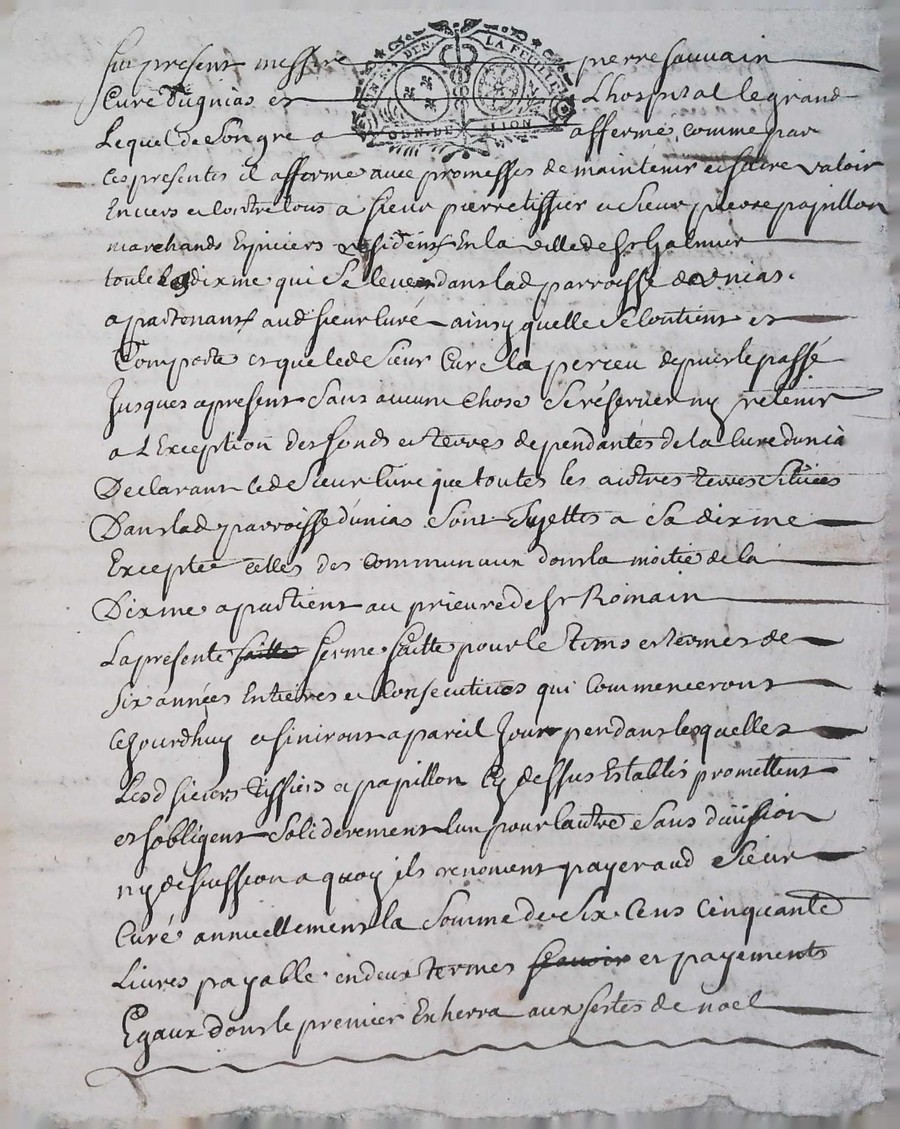 fut present messire pierre sauvain
Curé d'ugnias et L'hospital le grand
Lequel de son gré a affermé comme par
Ces presentes il afferme avec promesses de maintenir et faire valoir
Envers et contre tous a sieur pierre tissier et sieur pierre papillon
marchands Epiciers residents En la ville de st Galmier
toute la dixme qui se leve dans lad parroisse dunias
apartenant aud sieur Curé ainsy quelle se Contient et
Comporte et que led Sieur Curé la perceu depuis le passé
Jusques apresent sans aucune Chose se réserver ny retenir
a L'Exception des fonds et terres dependantes de la Cure dunia
Declarant led Sieur Curé que toutes les autres terres situées
Dans lad parroisse dunias sont sujettes a sa dixme
Exceptée celles des Communaux dont la moitié de la
Dixme apartient au prieuré de st Romain
La presente faitte ferme faitte pour le tems et termes de
Six années Entieres et Consecutives qui Commenceront
Cejourdhuy et finiront a pareil Jour pendant lesquelles
Lesd sieurs tissiers et papillon Cy dessus Establis promettent
et sobligent Soliderement lun pour lautre sans division
ny discussion a quoy ils renoncent payer aud Sieur
Curé annuellement la Somme de Six Cens Cinquante
Livres payable en deux termes sçavoir et payements
Egaux dont le premier Echerra aux festes de noel